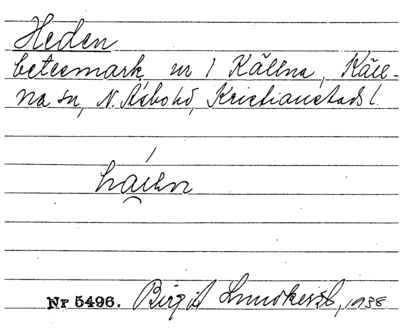 Heden
betesmark, nr 1 Källna, Käll-
na sn, N. Åsbo hd, Kristianstads l.
Nr 5496. Birgit 1938